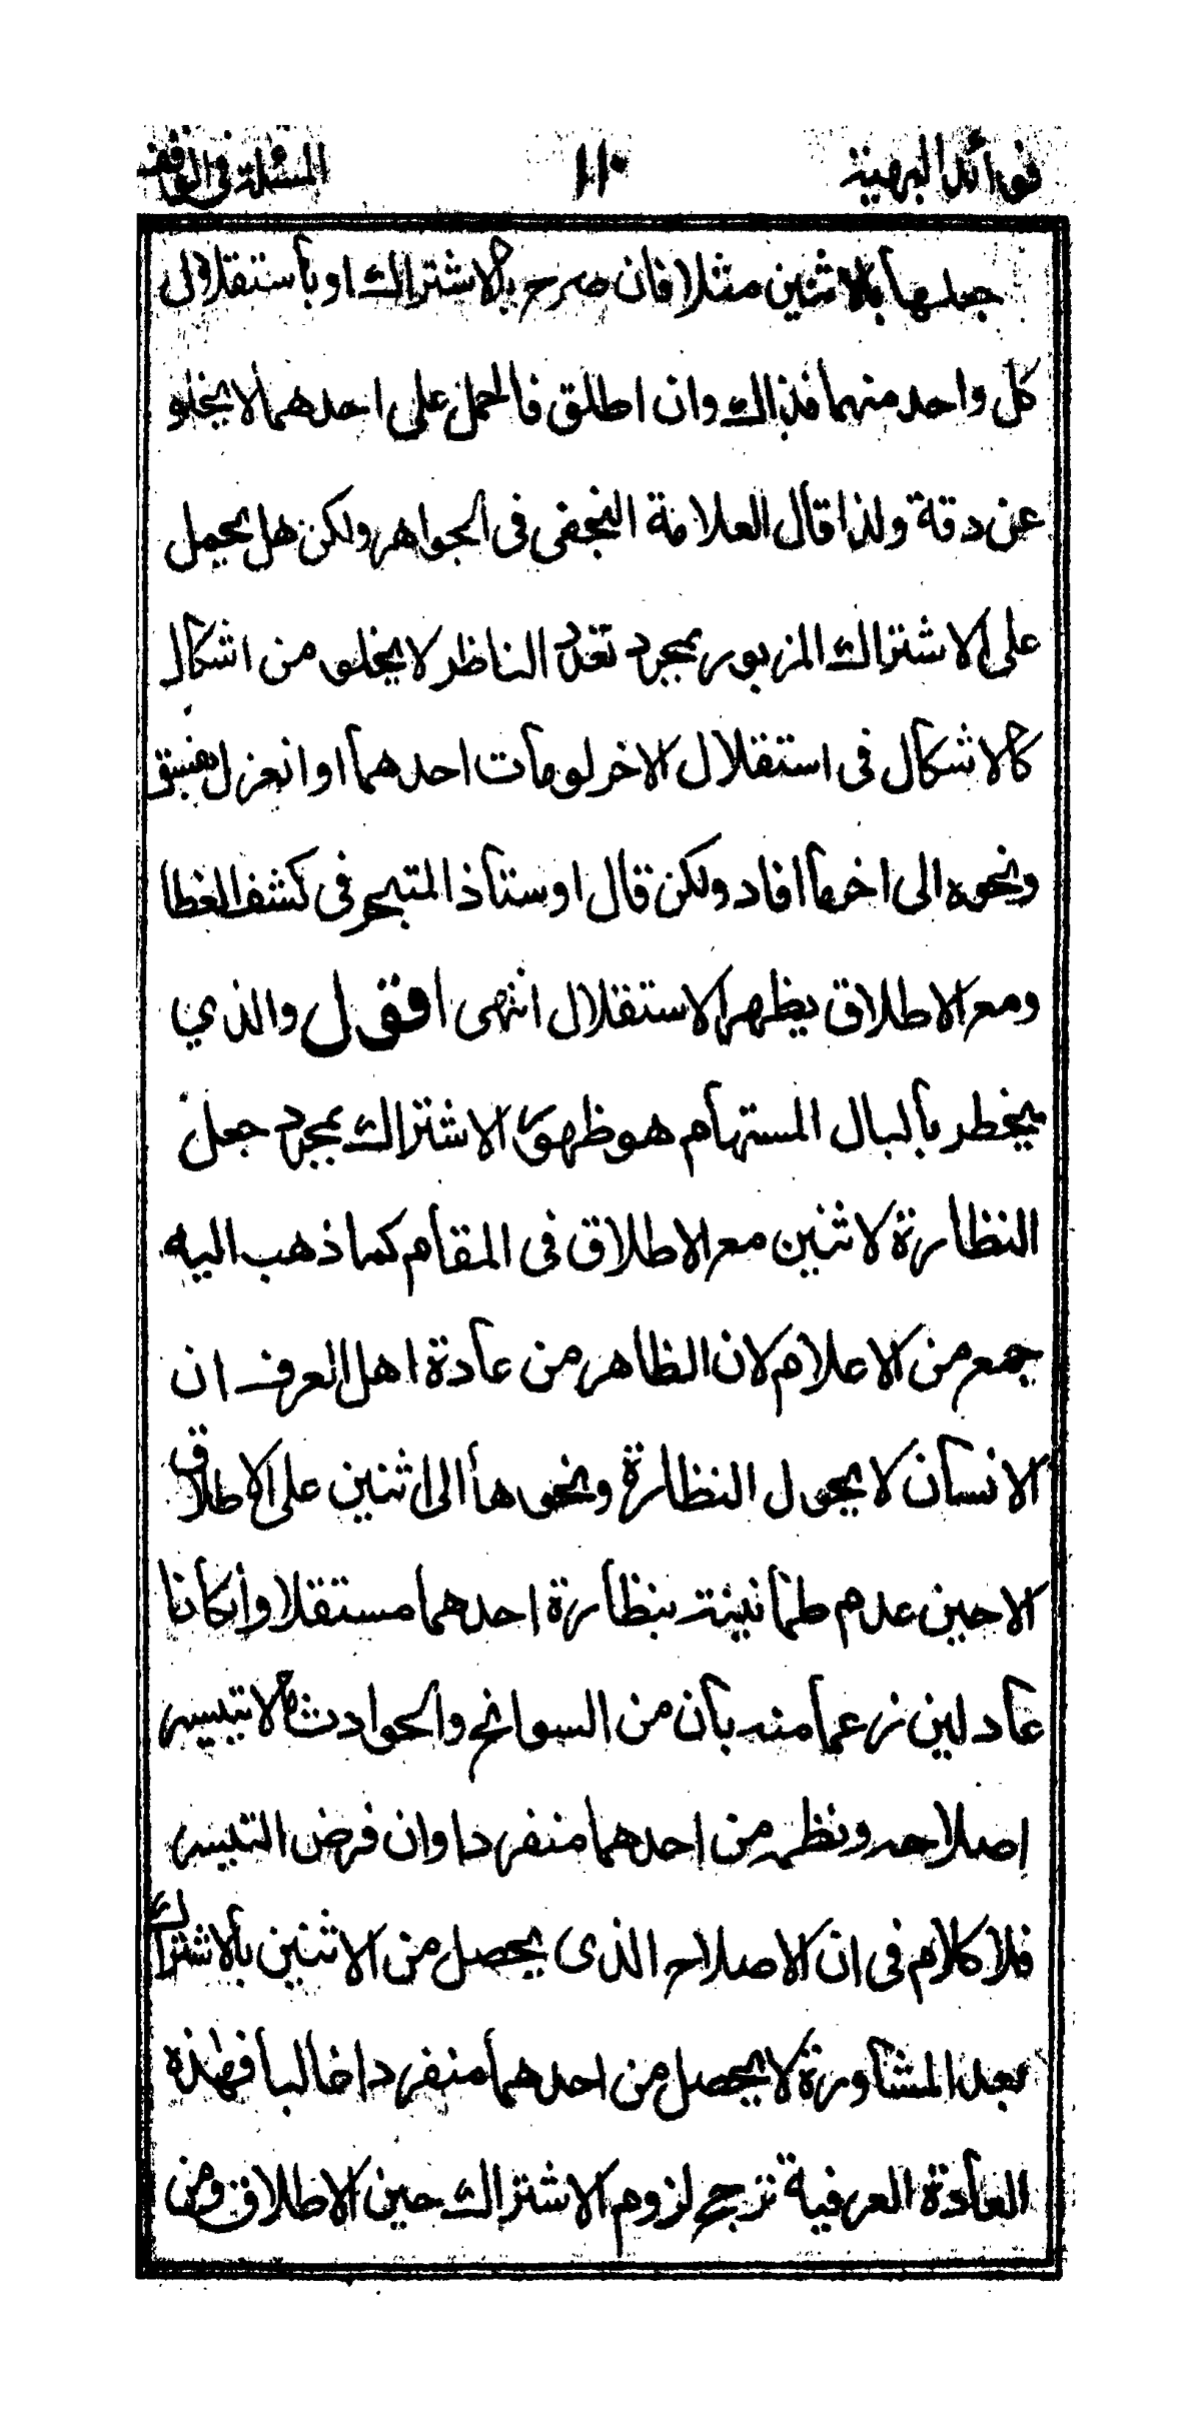 فوائد البهية ١١٠ المسئلة فى الوقف
جعلها بالاثنين مثلا فان صرح بالاشتراك او باستقلال
كل واحد منهما فذاك وان اطلق فالحمل على احدهما لا يخلو
عن دقة ولذا قال العلامة النجفى فى الجواهر ولكن هل يحمل
على الاشتراك المزبور بمجرد تعدد الناظر لا يخلو من اشكال
كالاشكال فى استقلال الاخر لو مات احدهما او انعزل بفسق
ونحوه الى اخر ما افاد ولكن قال اوستاذ المتبحر فى كشف الغطا
ومع الاطلاق يظهر الاستقلال انتهى اقول والذي
يخطر بالبال المستهام هو ظهور الاشتراك بمجرد جعل
النظارة لاثنين مع الاطلاق فى المقام كما ذهب اليه
جمع من الاعلام لان الظاهر من عادة اهل العرف ان
الانسان لا يحول النظارة ونحوها الى اثنين على الاطلاق
الا حين عدم طمانينة بنظارة احدهما مستقلا وان كانا
عادلين زعما منه بان من السوانح والحوادث ما لا تيسر
اصلاحه ونظمه من احدهما منفردا وان فرض التيسر
فلا كلام فى ان الاصلاح الذى يحصل من الاثنين بالاشتراك
بعد المشاورة لا يحصل من احدهما منفردا غالبا فهذه
العادة العرفية ترجح لزوم الاشتراك حين الاطلاق ومن